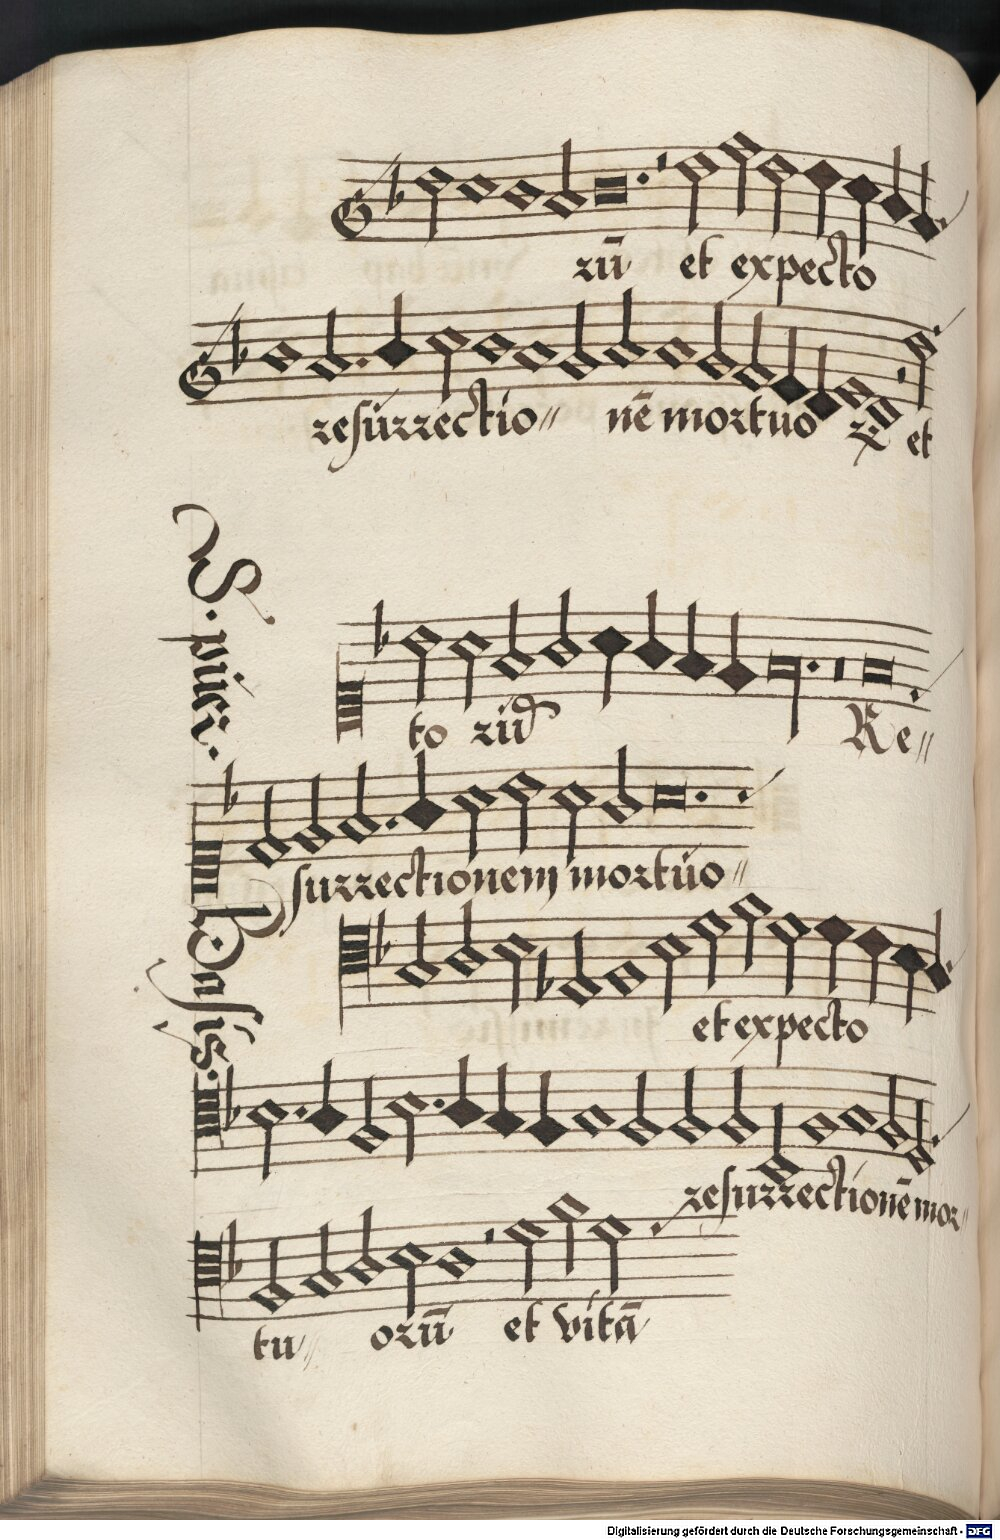 rū et expecto
resurrectio〃 nē mortuo rꝝ et
S. puer.
to rū
Re〃
surrectionem mortuo〃
Basis.
et expecto
resurrectionē mor〃
tu〃 orū et vitā
Digitalisierung gefördert durch die Deutsche Forschungsgemeinschaft - DFG